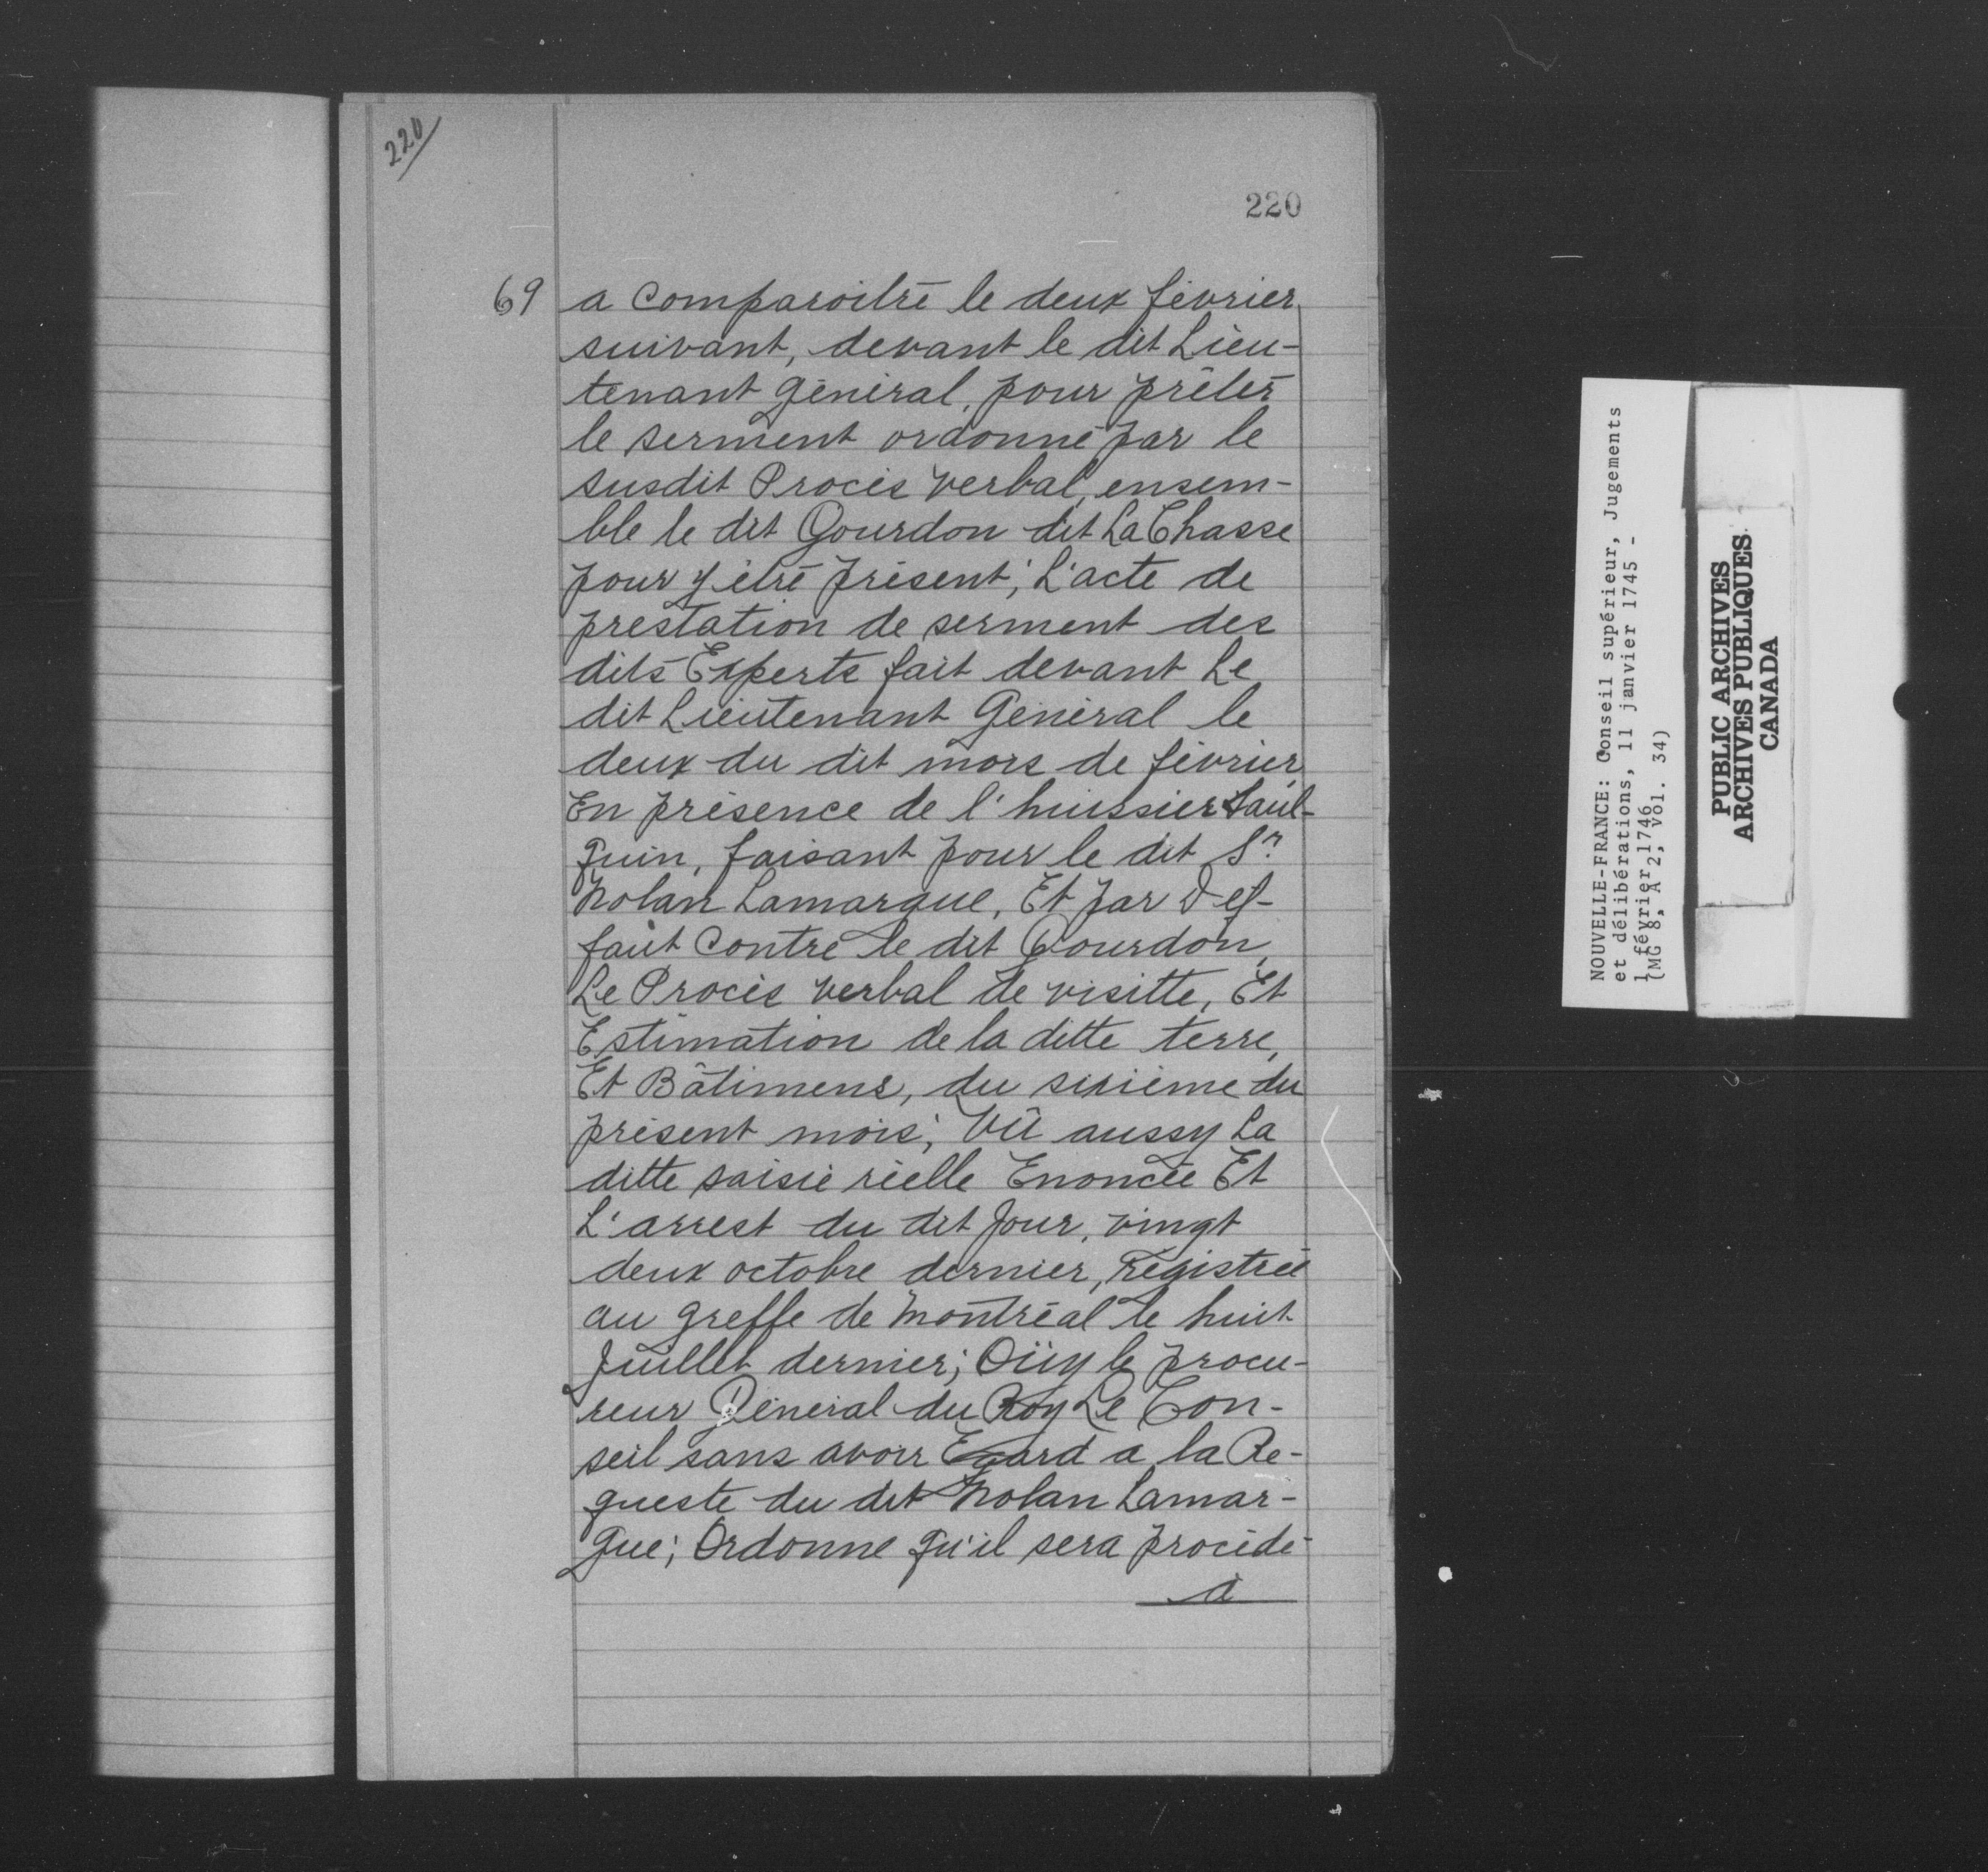 220
220
69 a comparoitre le deux février
suivant, devant le dit Lieu-
tenant général, pour prêter
le serment ordonné par le
susdit Procès verbal, ensem-
ble le dit Gourdon dit La Chasse
pour y être présent; L'acte de
prestation de serment des
dits Experts fait devant Le
dit Lieutenant Général le
deux du dit mois de février,
En présence de l'huissier
quin, faisant pour le dit Sr.
Nolan Lamarque, Et par Def-
faut contre le dit Gourdon,
Le Procès verbal de visitte, Et
Estimation de la ditte terre,
Et Bâtimens, du sixième du
présent mois; Vû aussy La
ditte saisie réelle Enoncée Et
L'arrest du dit Jour, vingt
deux octobre dernier, Régistrée
au greffe de Montréal le huit
Juillet dernier; Oüy le procu-
reur Général du Roy Le Con-
seil sans avoir Egard a la Re-
queste du dit Nolan Lamar-
que; Ordonne qu'il sera procédé
à
NOUVELLE-FRANCE: Conseil supérieur, Jugements
et délibérations, 11 janvier 1745 -
1 février 1746
(MG 8, A 2, vol. 34)
PUBLIC ARCHIVES
ARCHIVES PUBLIQUES
CANADA